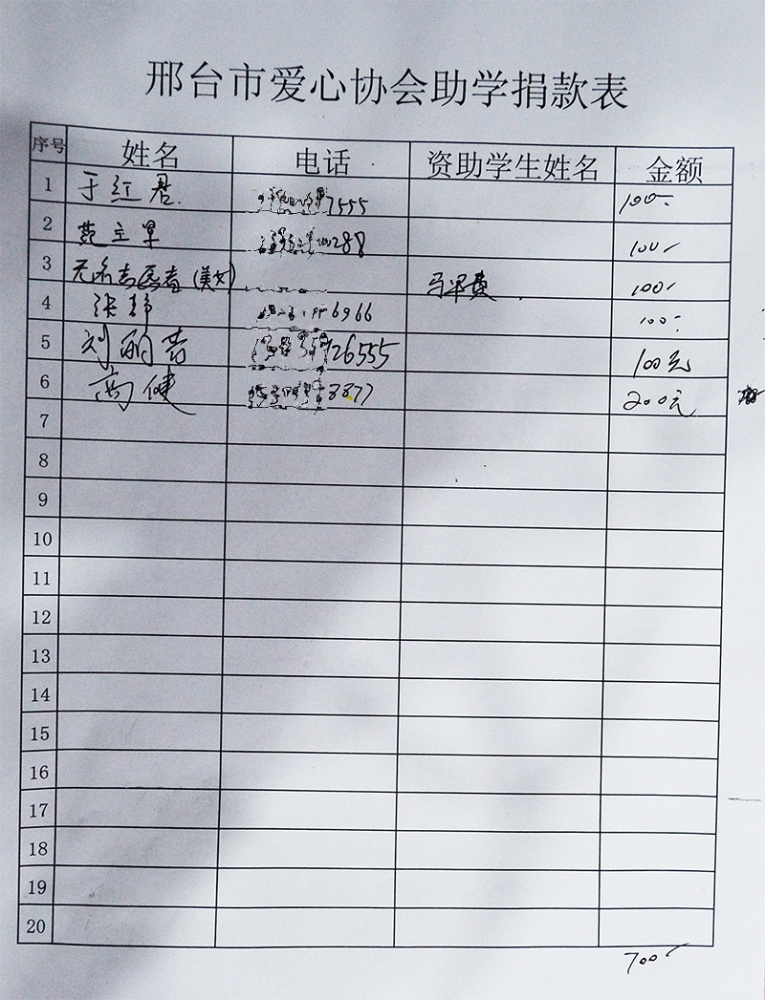 邢台市爱心协会助学捐款表
序号 姓名 电话 资助学生姓名 金额
1 于红君 7555 100-
2 288 100-
3 (美女) 100-
4 张静 6966 100-
5 刘丽 26555 100元
6 高健 8877 200元
7
8
9
10
11
12
13
14
15
16
17
18
19
20
700-